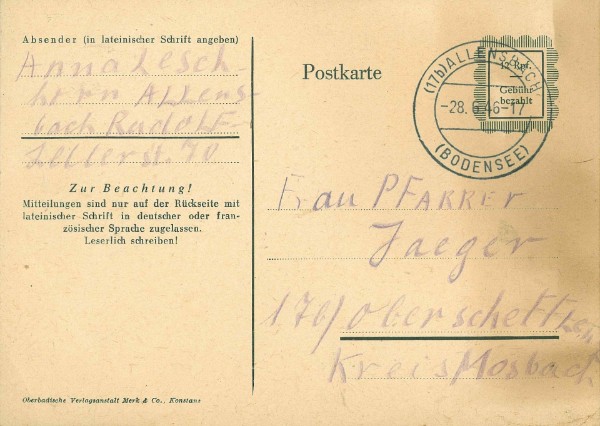 Absender (in lateinischer Schrift angeben)
Anna Lesch
horn Allens-
bach Radolf-
zellerst. 70
Zur Beachtung!
Mitteilungen sind nur auf der Rückseite mit
lateinischer Schrift in deutscher oder fran-
zösischer Sprache zugelassen.
Leserlich schreiben!
Oberbadische Verlagsanstalt Merk & Co., Konstanz
Postkarte
(17b) ALLENSBACH
-28.6.46-17
(BODENSEE)
12 Rpf.
Gebühr
bezahlt
Frau PFARRER
Jaeger
17b/ Oberscheff
Kreis Mosbach